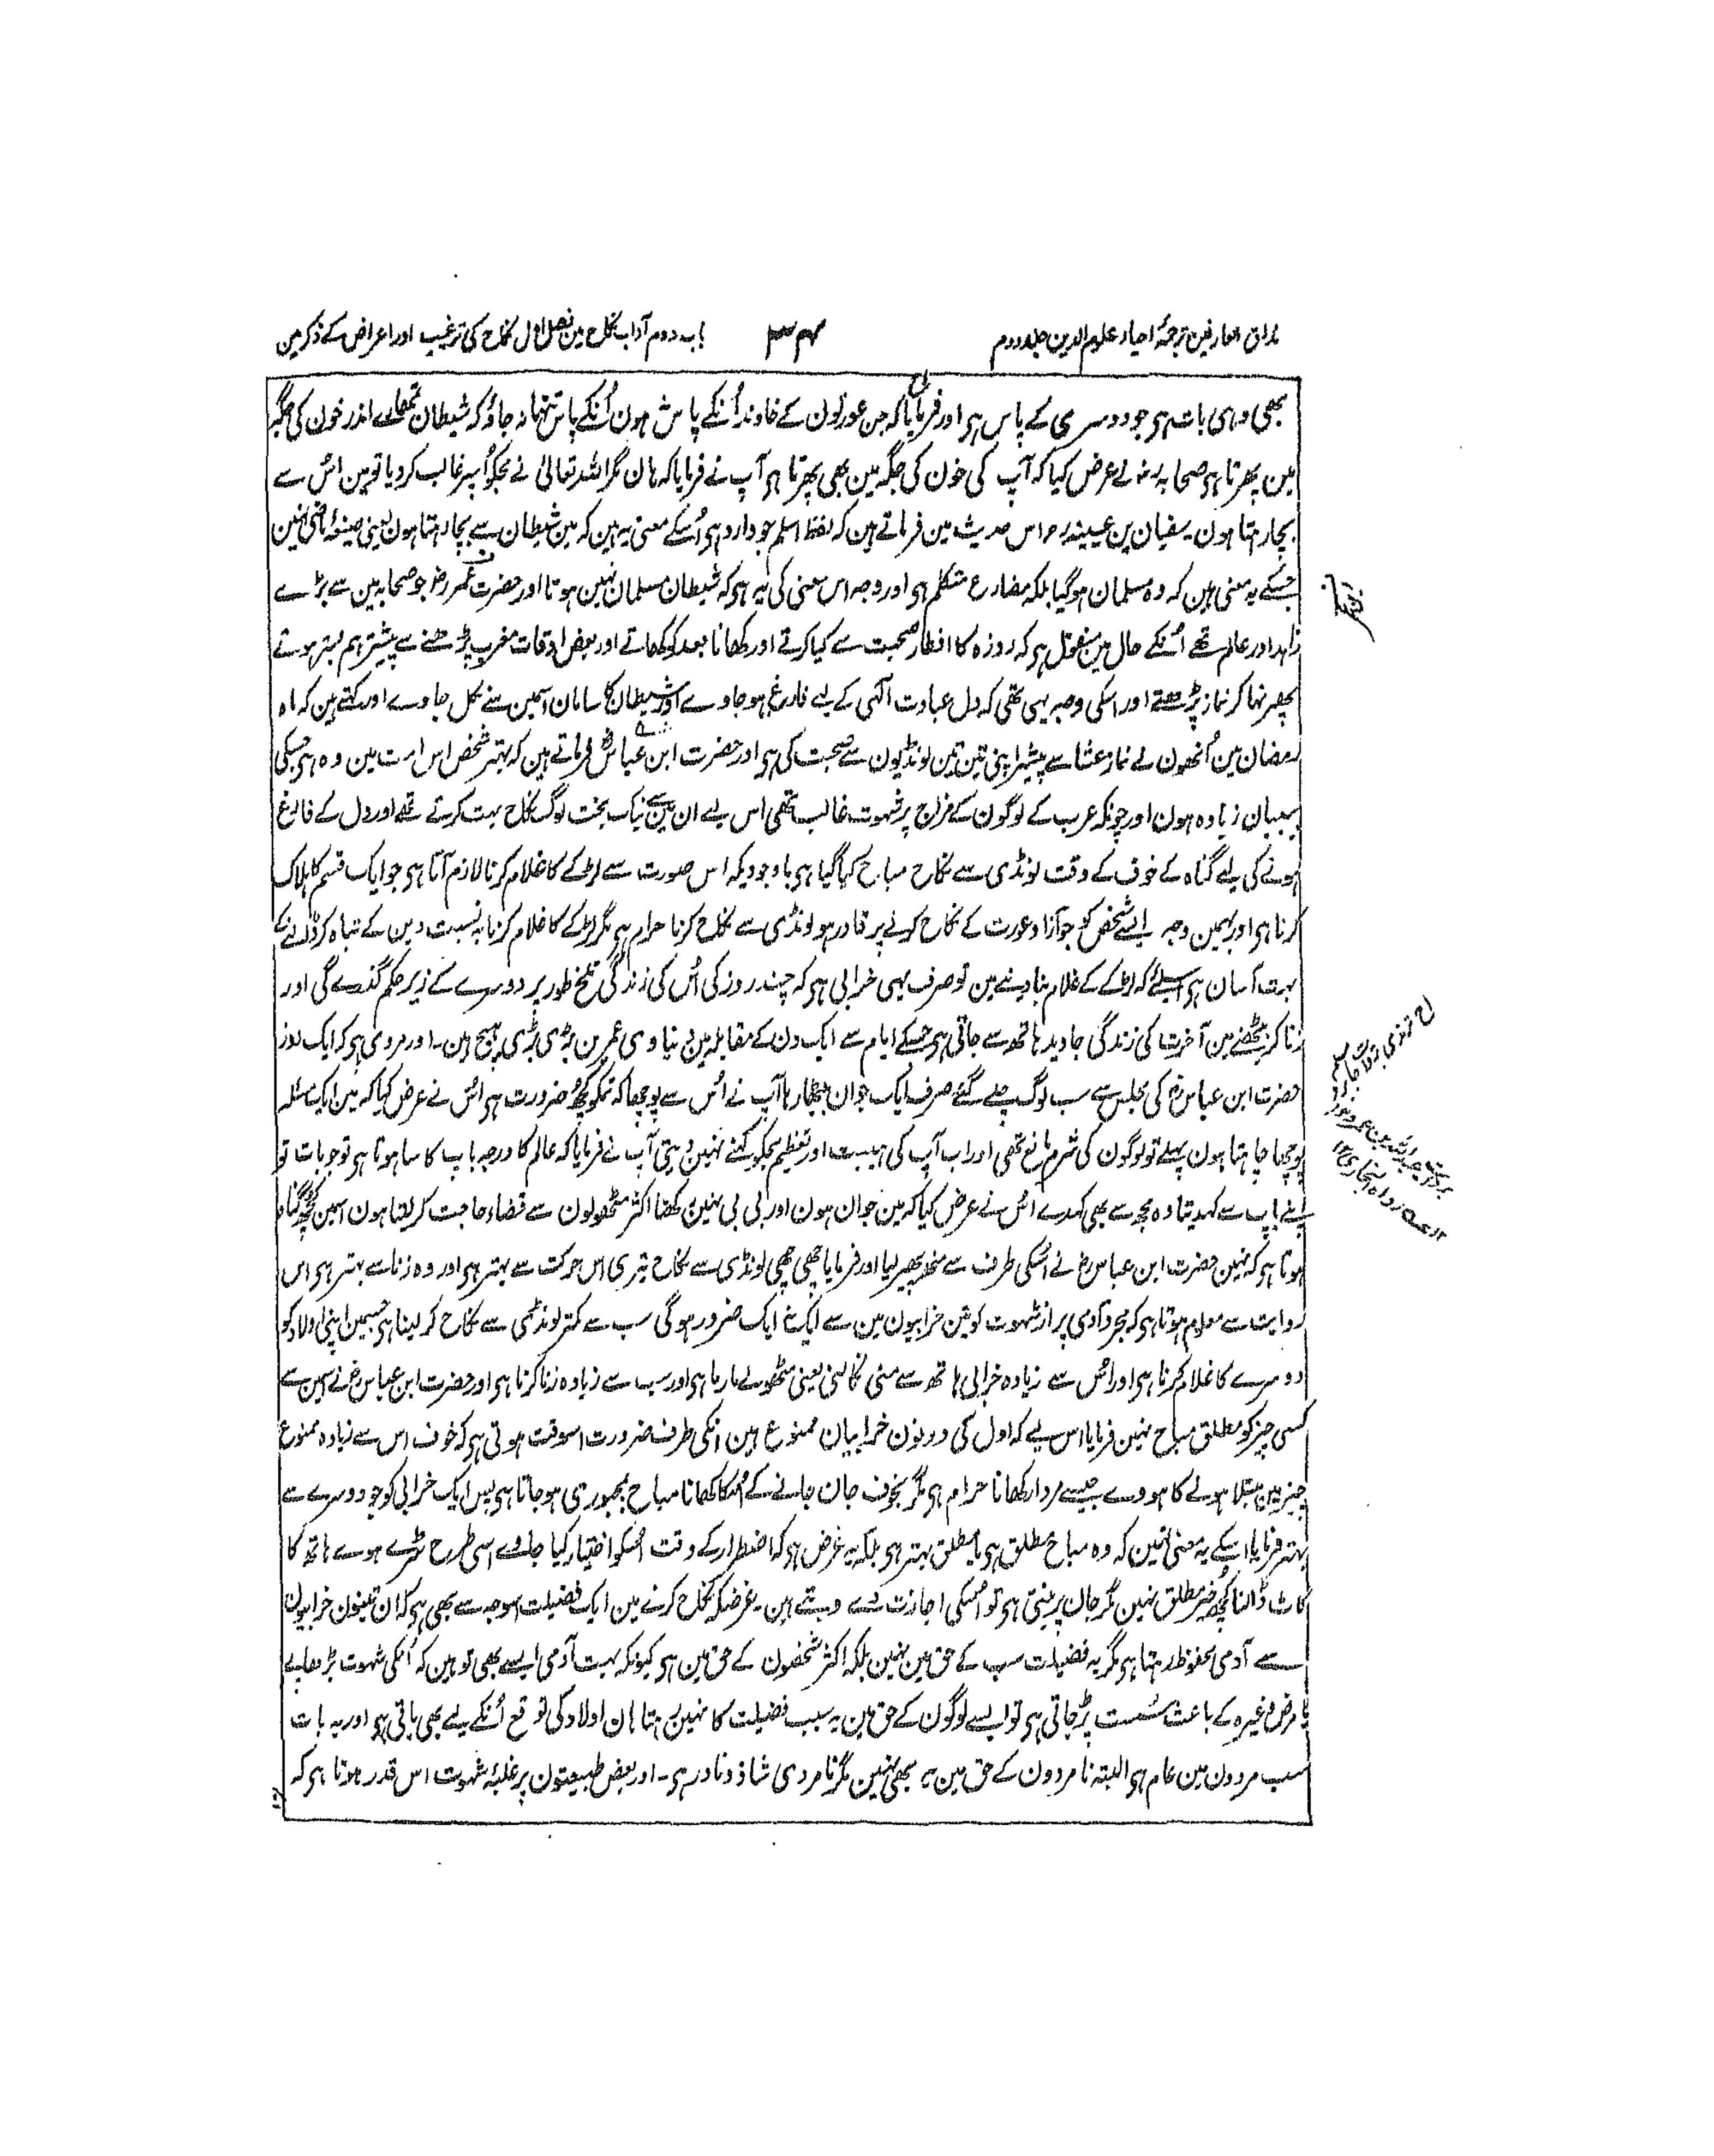 مذاق العارفین ترجمۂ احیاء علوم الدین جلد دوم
۳۴
باب دوم آداب نکاح مین فصل اول نکاح کی ترغیب اور اعراض کے ذکر مین
بھی وہی بات ہی جو دوسری کے پاس ہی اور فرمایا کہ جن عورتون کے خاوند اُنکے پاس نہون اُنکے پاس تنہا نہ جاؤ کہ شیطان تمھارے اندر خون کی جگہ
مین پھرتا ہی صحابہ رضہ نے عرض کیا کہ آپ کی خون کی جگہ مین بھی پھرتا ہی آپ نے فرمایا کہ ہان مگر اللہ تعالیٰ نے مجکو اُسپر غالب کر دیا تو مین اُس سے
بچا رہتا ہون سفیان بن عیینہ رح اس حدیث مین فرماتے ہین کہ لفظ اسلم جو وارد ہی اُسکے معنی یہ ہین کہ مین شیطان سے بچا رہتا ہون یعنی صیغۂ ماضی نہین
جسکے یہ معنی ہین کہ وہ مسلمان ہو گیا بلکہ مضارع متکلم ہی اور وجہ اس معنی کی یہ ہی کہ شیطان مسلمان نہین ہوتا اور حضرت عمر رضہ جو صحابہ مین سے بڑے
زاہد اور عالم تھے اُنکے حال مین منقول ہی کہ روزہ کا افطار صحبت سے کیا کرتے اور کھانا بعد کو کھاتے اور بعض اوقات مغرب پڑھنے سے پیشتر ہم بستر ہوتے
پھر نہا کر نماز پڑھتے اور اسکی وجہ یہی تھی کہ دل عبادت الٰہی کے لیے فارغ ہو جاوے اور شیطان کا سامان اسمین سے نکل جاوے اور کہتے ہین کہ ماہ
رمضان مین اُنھون نے نماز عشا سے پیشتر اپنی تین تین لونڈیون سے صحبت کی ہی اور حضرت ابن عباس رضہ فرماتے ہین کہ بہتر شخص اس امت مین وہ ہی جسکی
بیبیان زیادہ ہون اور چونکہ عرب کے لوگون کے مزاج پر شہوت غالب تھی اس لیے ان مین سے نیک بخت لوگ نکاح بہت کرتے تھے اور دل کے فارغ
ہونے کی لیے گناہ کے خوف کے وقت لونڈی سے نکاح مباح کیا گیا ہی باوجودیکہ اس صورت سے لڑکے کا غلام کرنا لازم آتا ہی جو ایک قسم کا ہلاک
کرنا ہی اور ہمین وجہ ایسے شخص کو جو آزاد عورت کے نکاح کرنے پر قادر ہو لونڈی سے نکاح کرنا حرام ہی مگر لڑکے کا غلام کرنا بہ نسبت دین کے تباہ کر ڈالنے کے
بہت آسان ہی اسلئے کہ لڑکے کے غلام بنا دینے مین تو صرف یہی خرابی ہی کہ چند روز کی اُس کی زندگی تلخ طور پر دوسرے کے زیر حکم گذرے گی اور
زنا کر بیٹھنے مین آخرت کی زندگی جاوید ہاتھ سے جاتی ہی جسکے ایام سے ایک دن کے مقابلہ مین دنیاوی عمرین بڑی بڑی ہیچ ہین۔ اور مروی ہی کہ ایک روز
حضرت ابن عباس رضہ کی مجلس سے سب لوگ چلے گئے صرف ایک جوان بیٹھا رہا آپ نے اُس سے پوچھا کہ تمکو کچھ ضرورت ہی اُس نے عرض کیا کہ مین ایک مسئلہ
پوچھا چاہتا ہون پہلے تو لوگون کی شرم مانع تھی اور اب آپ کی ہیبت اور تعظیم مجکو کہنے نہین دیتی آپ نے فرمایا کہ عالم کا درجہ باپ کا سا ہوتا ہی تو جو بات تو
اپنے باپ سے کہدیتا وہ مجھ سے بھی کہدے اُس نے عرض کیا کہ مین جوان ہون اور بی بی نہین رکھتا اکثر مٹھولون سے قضاء حاجت کر لیتا ہون اسمین کچھ گناہ
ہوتا ہی کہ نہین حضرت ابن عباس رضہ نے اُسکی طرف سے منھ پھیر لیا اور فرمایا چھی چھی لونڈی سے نکاح تیری اس حرکت سے بہتر ہی اور وہ زنا سے بہتر ہی اس
روایت سے معلوم ہوتا ہی کہ مجرد آدمی پر از شہوت کو تین خرابیون مین سے ایک نہ ایک ضرور ہوگی سب سے کمتر لونڈی سے نکاح کر لینا ہی جسمین اپنی اولاد کو
دوسرے کا غلام کرنا ہی اور اُس سے زیادہ خرابی ہاتھ سے منی نکالنی یعنی مٹھولے مارنا ہی اور سب سے زیادہ زنا کرنا ہی اور حضرت ابن عباس رضہ نے اسمین سے
کسی چیز کو مطلق مباح نہین فرمایا اس لیے کہ اول کی دونون خرابیان ممنوع ہین انکی طرف ضرورت اسوقت ہوتی ہی کہ خوف اس سے زیادہ ممنوع
چیز مین مبتلا ہونے کا ہووے جیسے مردار کھانا حرام ہی مگر بخوف جان جانے کے اُسکا کھانا مباح بمجبوری ہو جاتا ہی پس ایک خرابی کو جو دوسرے سے
بہتر فرمایا اسکے یہ معنی نہین کہ وہ مباح مطلق ہی یا مطلق بہتر ہی بلکہ یہ غرض ہی کہ اضطرار کے وقت اُسکو اختیار کیا جاوے اسی طرح سڑے ہوے ہاتھ کا
کاٹ ڈالنا کچھ خیر مطلق نہین مگر جان پر بنتی ہی تو اُسکی اجازت دے دیتے ہین۔ غرضکہ نکاح کرنے مین ایک فضیلت اسوجہ سے بھی ہی کہ ان تینون خرابیون
سے آدمی محفوظ رہتا ہی مگر یہ فضیلت سب کے حق مین نہین بلکہ اکثر شخصون کے حق مین ہی کیونکہ بہت آدمی ایسے بھی تو ہین کہ اُنکی شہوت بڑھاپے
یا مرض وغیرہ کے باعث سُست پڑ جاتی ہی تو ایسے لوگون کے حق مین یہ سبب فضیلت کا نہین رہتا ہان اولاد کی توقع اُنکے لیے بھی باقی ہی اور یہ بات
سب مردون مین عام ہی البتہ نامردون کے حق مین یہ بھی نہین مگر نامردی شاذ و نادر ہی۔ اور بعض طبیعتون پر غلبۂ شہوت اس قدر ہوتا ہی کہ